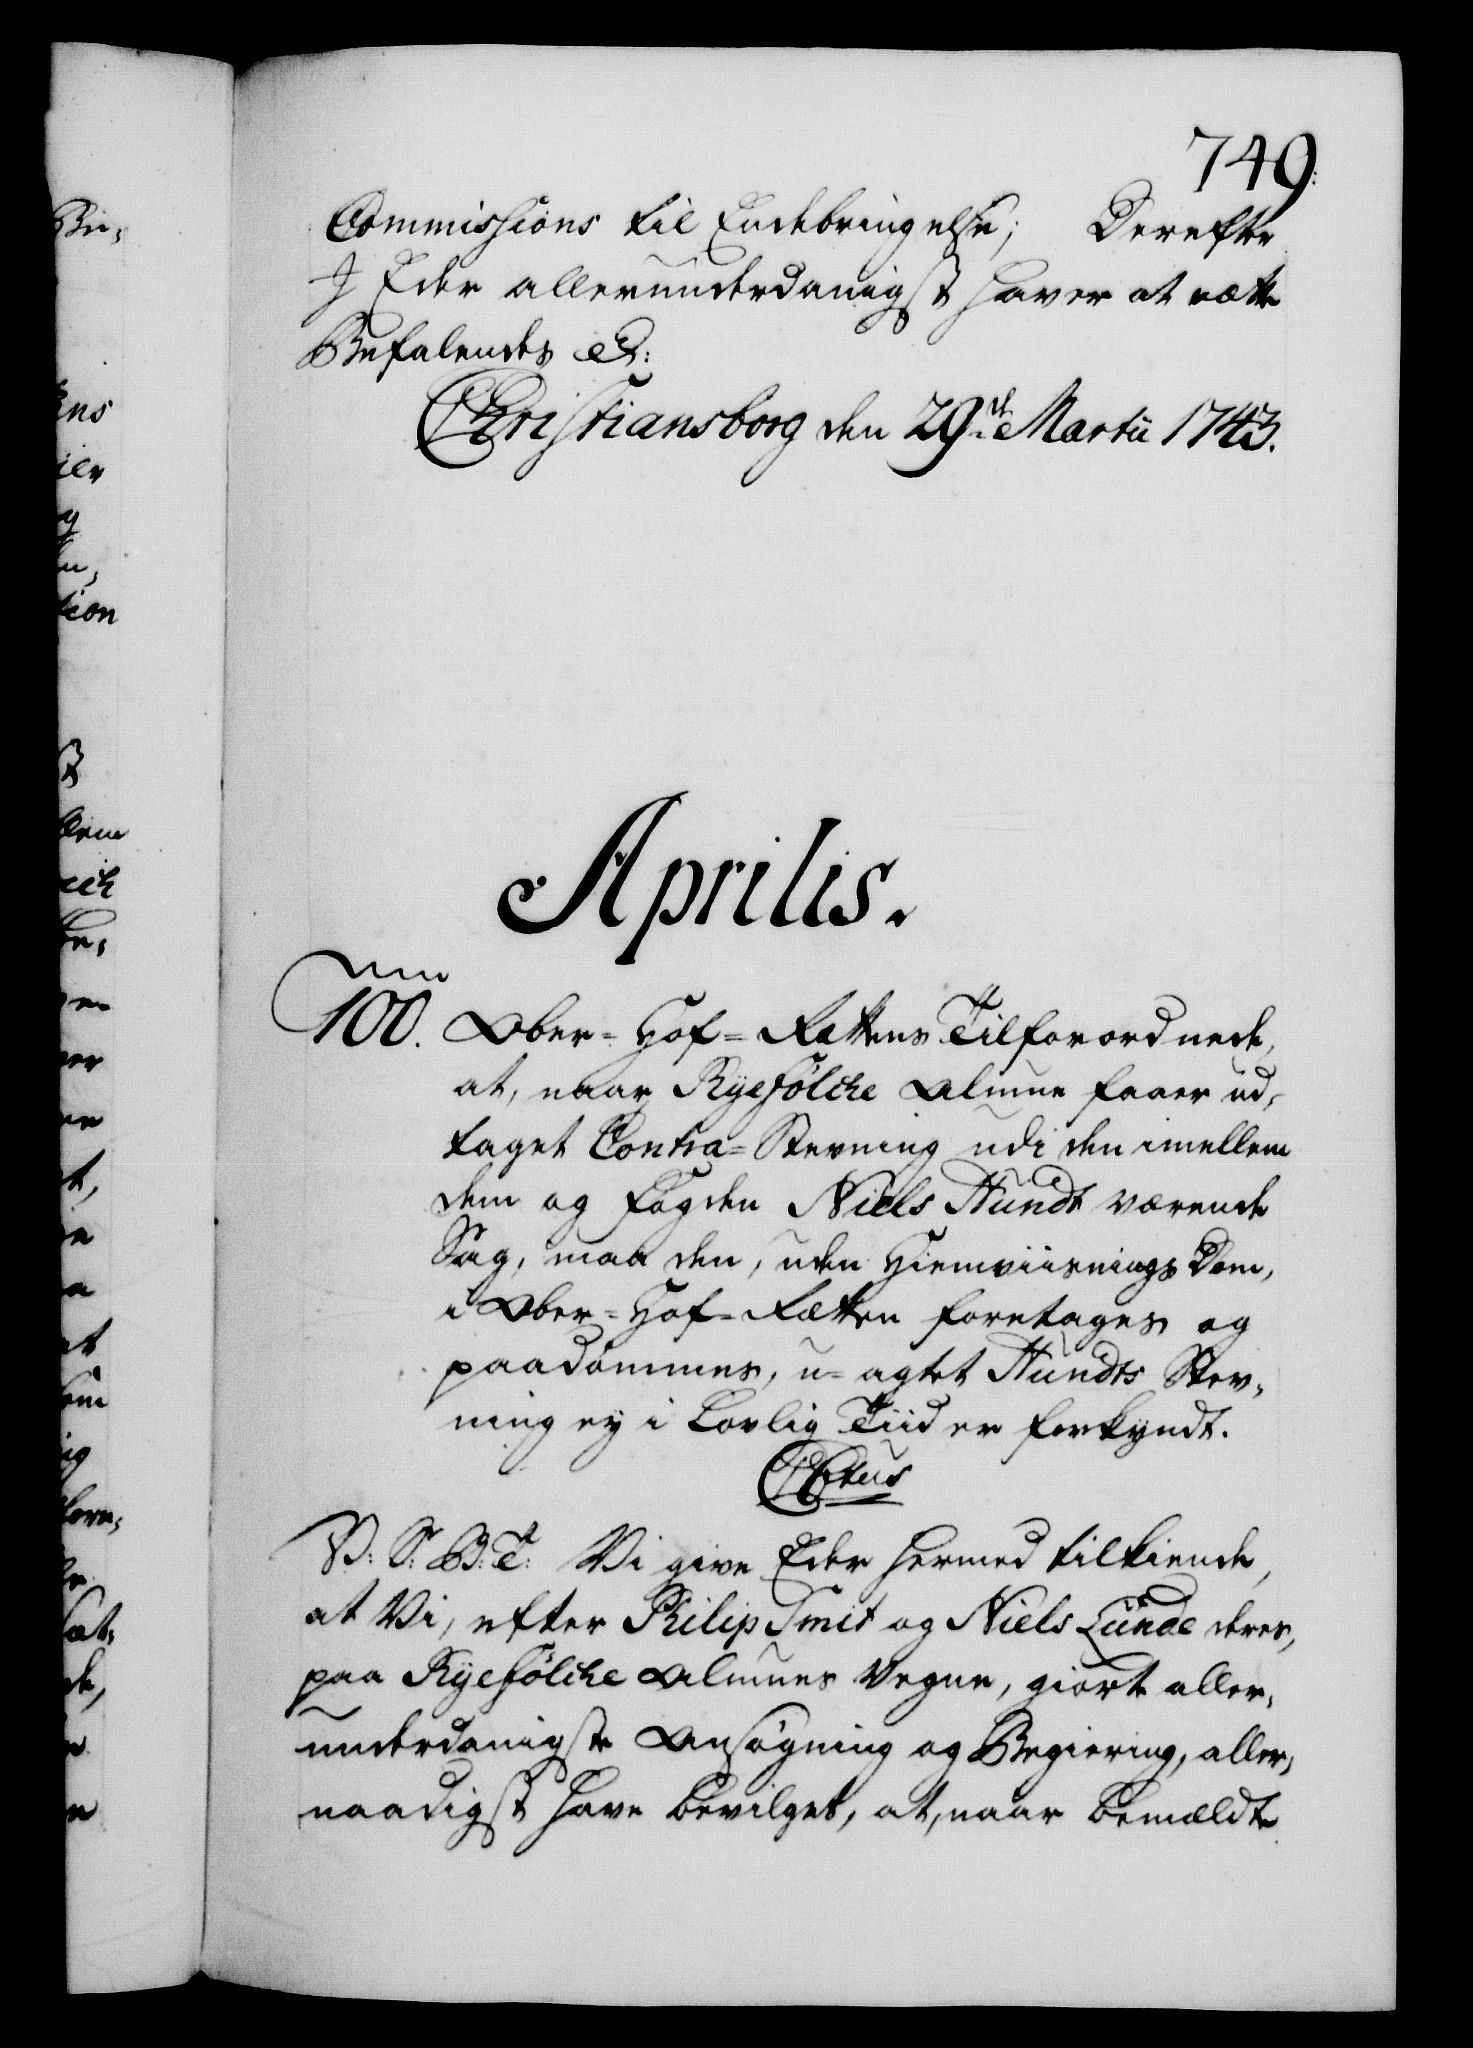 749.
Commissions til Endebringelse; Derefter
I Eder allerunderdanigst haver at rætte
Befalendes etc:
Christiansborg den 29de Martii 1743.
Aprilis.
100. Ober-Hof-Rettens Tilforordnede,
at, naar Ryefölche Almue faaer ud-
taget Contra-Stevning udi den imellem
dem og Fogden Niels Hundt værende
Sag, maa den, uden Hiemviisnings Dom,
i Ober-Hof-Rætten foretages og
paadömmes, u-agtet Hundts Stev-
ning ey i Lovlig Tiid er forkyndt.
C 6tus
V: S: B: T: Vi give Eder hermed tilkiende,
at Vi, efter Philip Smit og Niels Lunde deres,
paa Ryefölche Almues Vegne, giorte aller-
underdanigste Ansögning og Begiering, aller-
naadigst have bevilget, at, naar bemældte
Bei-
ens
ier
g
en,
tion
dem
ich
be-
ge-
ver
t,
a
at
som
ig
de,